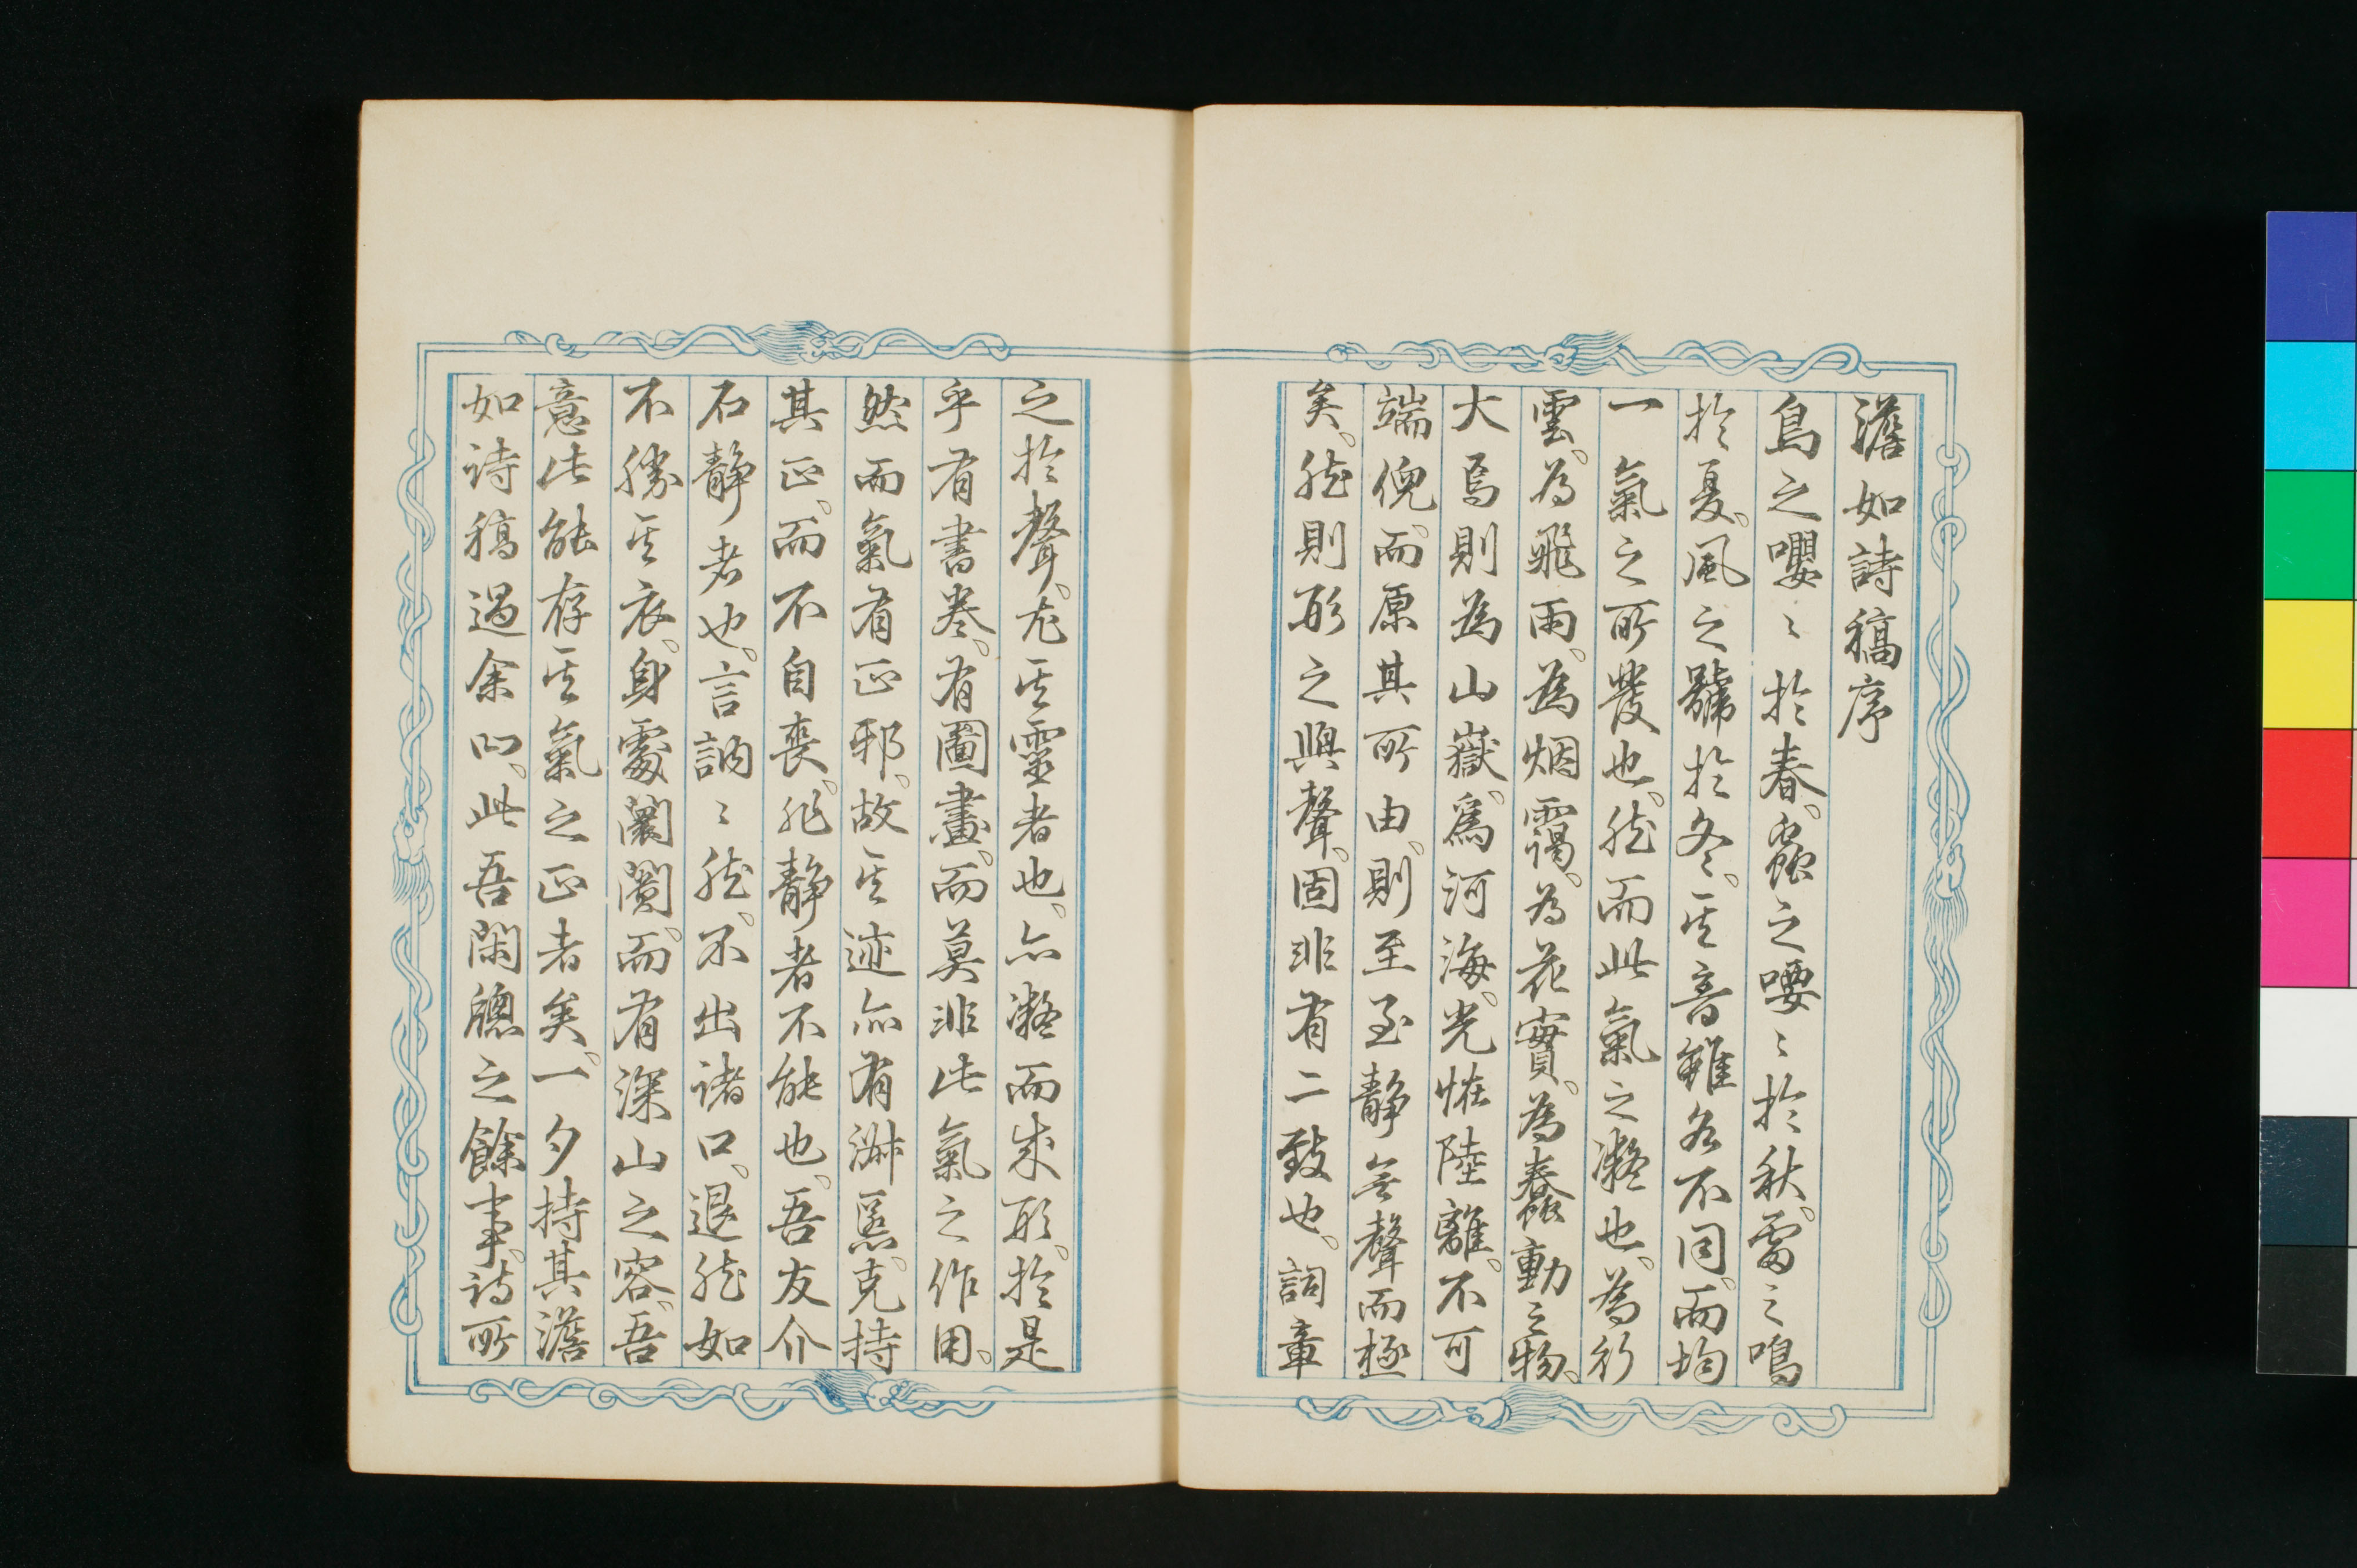 澹如詩稿序
鳥之嚶〻於春。蟲之喓〻於秋。雷之鳴
於夏。風之號於冬。其音雖各不同。而均
一氣之所發也。然而此氣之凝也。為行
雲。為飛雨。為烟靄。為花實。為蠢動之物。
大焉則為山嶽。為河海。光怪陸離。不可
端倪。而原其所由。則至至靜無聲而極
矣。然則形之與聲。固非有二致也。詞章
之於聲。尤其靈者也。亦凝而成形。於是
乎有書卷。有圖畫。而莫非此氣之作用。
然而氣有正邪。故其迹亦有淑慝。克持
其正。而不自喪。非靜者不能也。吾友介
石靜者也。言訥〻然。不出諸口。退然如
不勝其衣。身處闤闠。而有深山之容。吾
意此能存其氣之正者矣。一夕持其澹
如詩稿過余曰。此吾閑牕之餘事。詩所